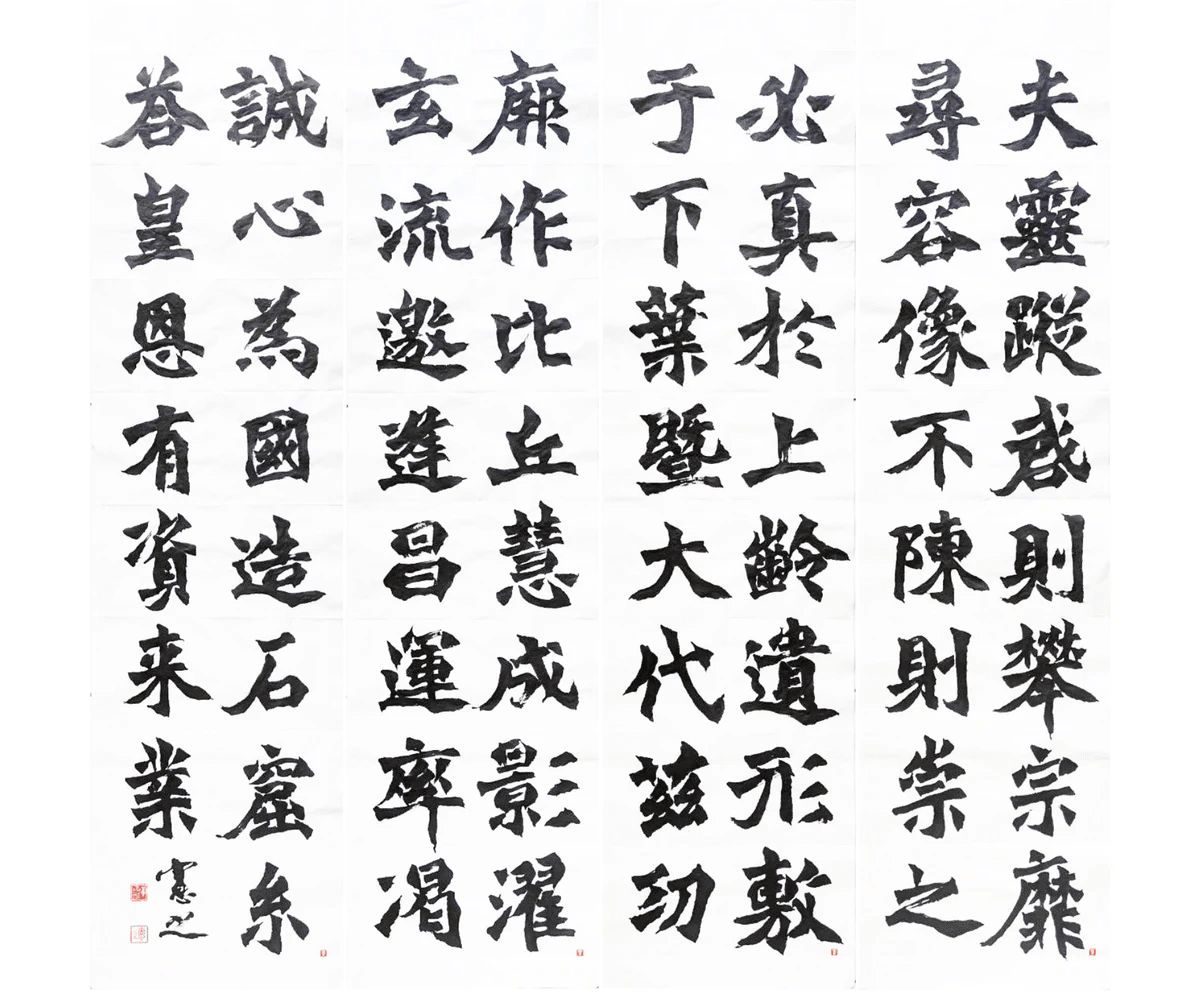 夫靈蹤啓則攀宗靡
尋容像不陳則崇之
必真於上齡遺形敷
于下葉暨大代茲功
厥作比丘慧成影濯
玄流邀逢昌運率渴
誠心為國造石窟系
荅皇恩有資来業